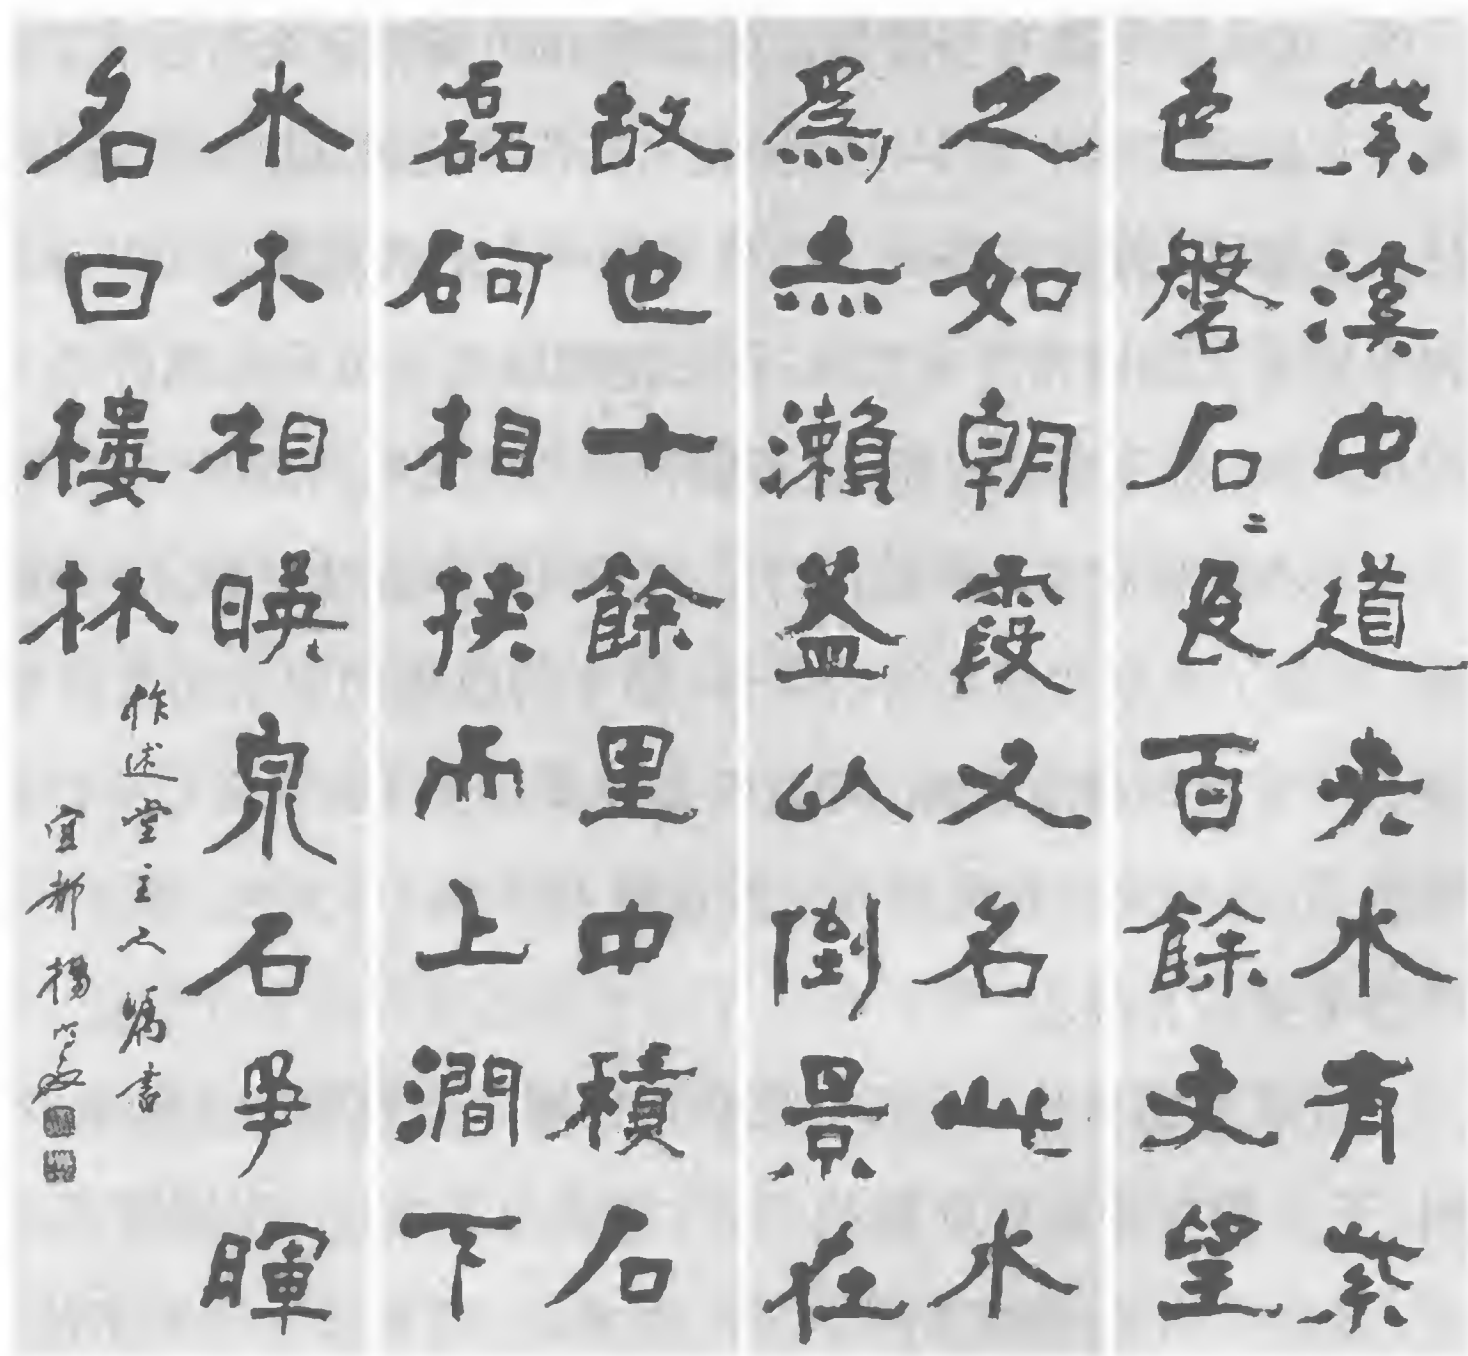 紫溪中道夾水有紫
色磐石〻長百餘丈望
之如朝霞又名此水
爲赤瀨蓋以倒景在
故也十餘里中積石
磊砢相挾而上澗下
水木相暎泉石爭暉
名曰樓林
作述堂主人囑書
宜都楊守敬